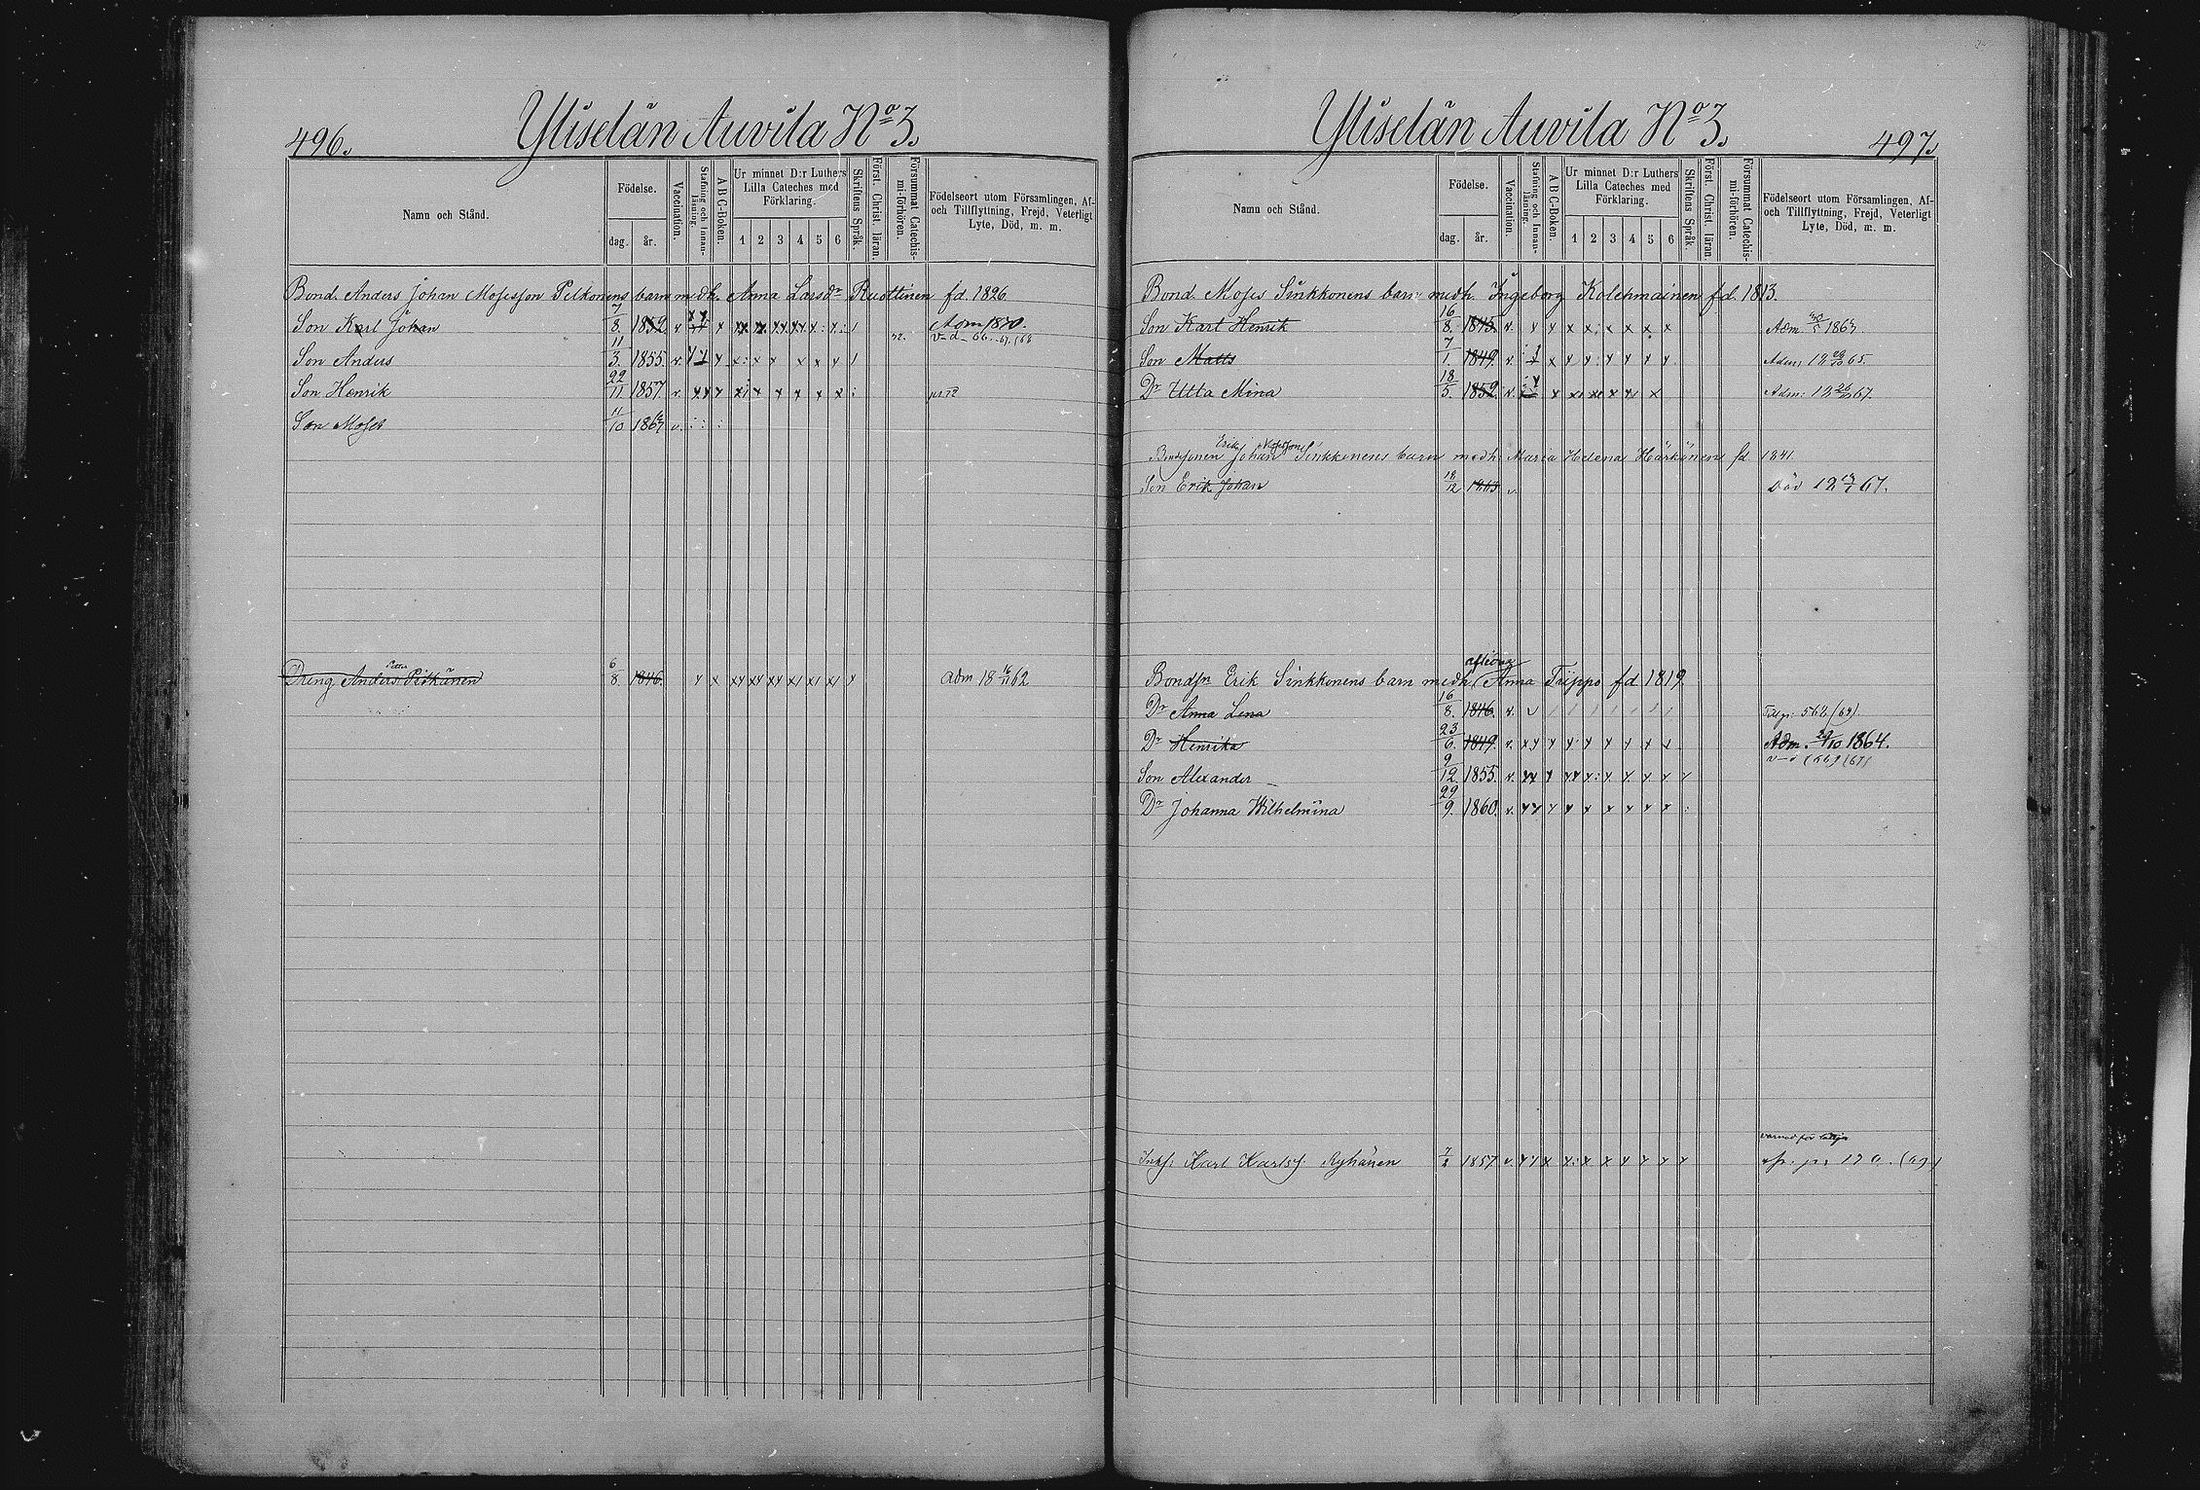 496.
Yliselän Auvila No 3.
Namn och Stånd.
Födelse.
dag.
år.
Vaccination.
Stafning och Innan-läsning.
A B C-Boken.
Ur minnet D:r Luthers
Lilla Cateches med
Förklaring.
1 2 3 4 5 6
Skriftens Språk.
Först. Christ. läran.
Försummat Catechis-mi-förhören.
Födelseort utom Församlingen, Af-
och Tillflyttning, Frejd, Veterligt
Lyte, Död, m. m.
Bond. Anders Johan Mosesson Pelkonens barn medh. Anna Larsdr Ruottinen fd. 1826.
Son Karl Johan 7/8. 1852 v x x x Adm 1870.
Son Anders 11/3. 1855. v.
Son Henrik 22/11 1857. v.
Son Moses 11/10 v.
Dreng Anders Petter Pitkänen 6/8. 1846. adm 18 62
497.
Yliselän Auvila No 3.
Namn och Stånd.
Födelse.
dag.
år.
Vaccination.
Stafning och Innan-läsning.
A B C-Boken.
Ur minnet D:r Luthers
Lilla Cateches med
Förklaring.
1 2 3 4 5 6
Skriftens Språk.
Först. Christ. läran.
Försummat Catechis-mi-förhören.
Födelseort utom Församlingen, Af-
och Tillflyttning, Frejd, Veterligt
Lyte, Död, m. m.
Bond. Moses Sinkkonens barn medh. Ingeborg Kolehmainen fd. 1813.
Son Karl Henrik 16/8. 1845. v. x x x x x x x x Adm.
Son Matts 7/1. 1849. v. Adm:
Dr Ulla Mina 18/5. 1852. v. Adm:
Bondsonen Erik Johan Mosesson Sinkkonens barn medh: Maria Helena Härkönen fd 1841.
Son Erik Johan 18/12 v. Död
Bondsn Erik Sinkkonens barn medh aflidna Anna Trippo fd 1819
Dr Anna Lena 16/8. 1846. v.
Dr Henrika 23/6. 1849. v. Adm. 1864.
Son Alexander 9/12. 1855. v.
Dr Johanna Wilhelmina 29/9. 1860. v.
Inhs: Karl Karlss: Ryhänen 1857 v.